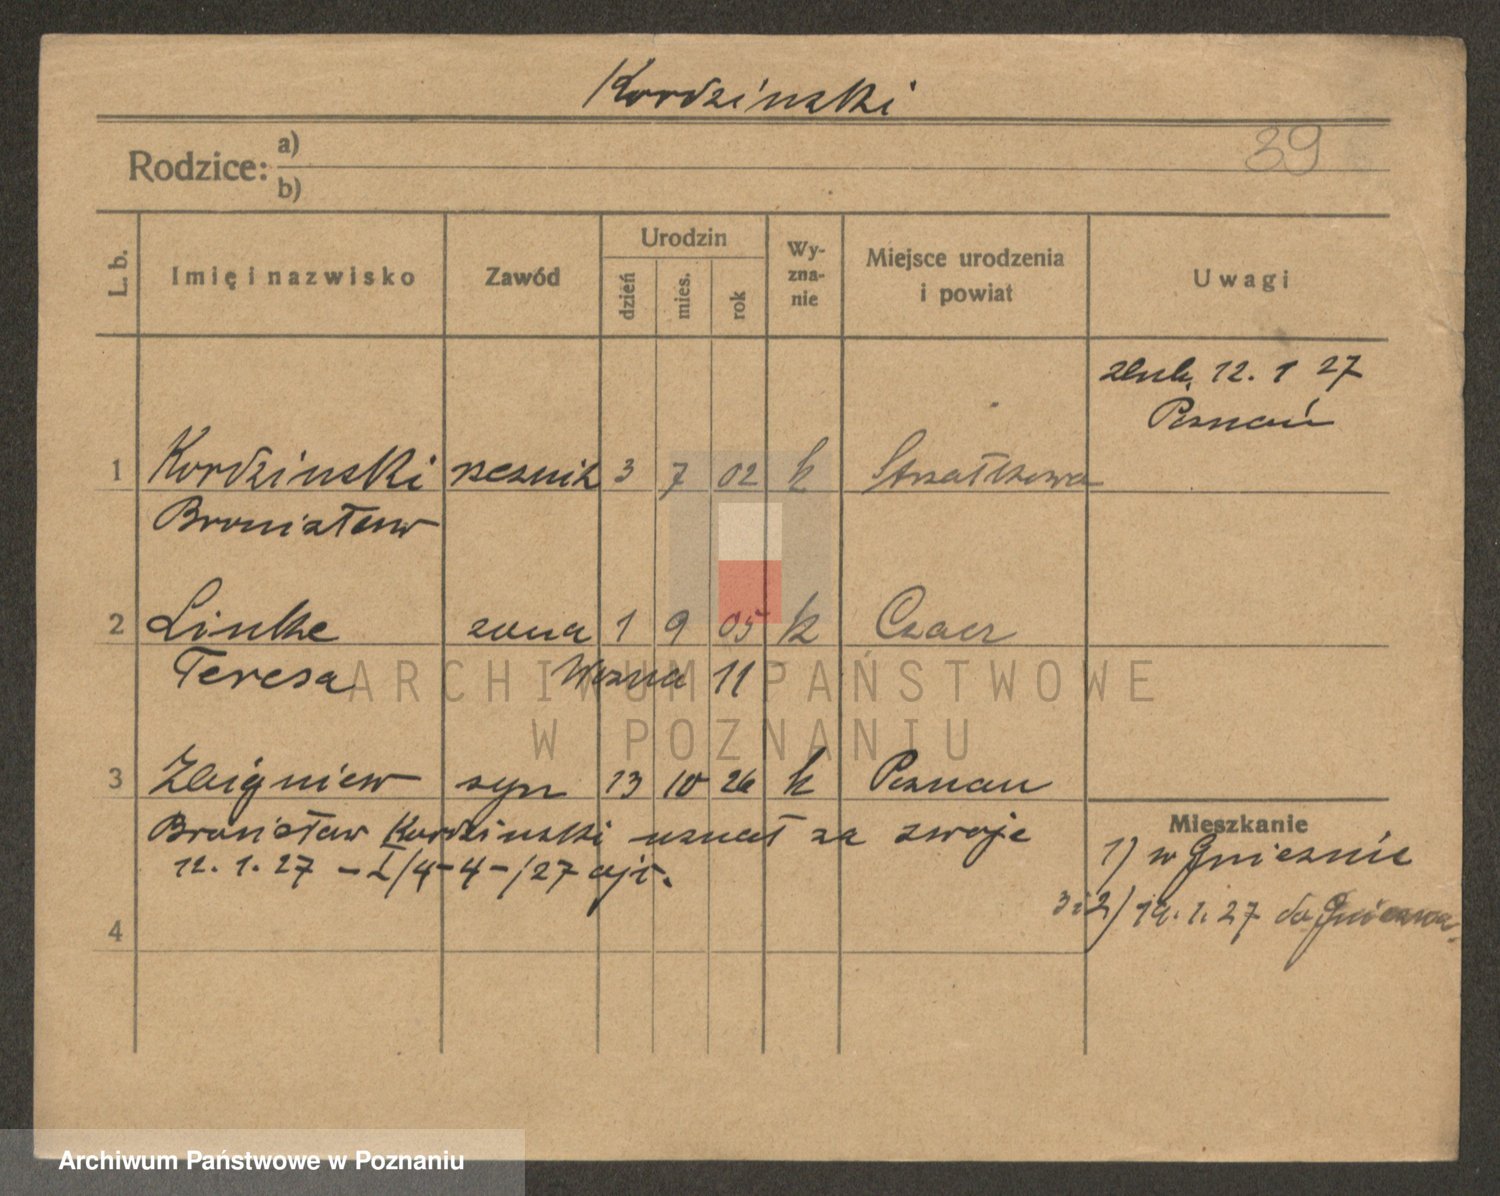 Kordzinski
39
Rodzice: a)
b)
L. b.
Imię i nazwisko
Zawód
Urodzin
dzień
mies.
rok
Wy-
zna-
nie
Miejsce urodzenia
i powiat
Uwagi
ślub. 12. 1 27
Poznań
1 Kordzinski rzeznik 3 7 02 k Strzałkowa
Bronisław
2 Linke zona 1 9 05 k Czacz
Teresa Wozna 11
3 Zbigniew syn 13 10 26 k Poznan
Bronisław Kordzinski uznał za swoje
12. 1. 27 – I/4-4-/27
Mieszkanie
1) w Gnieznie
3 i 2) 19. 1. 27 do Gniezna
4
ARCHIWUM PAŃSTWOWE
W POZNANIU
Archiwum Państwowe w Poznaniu